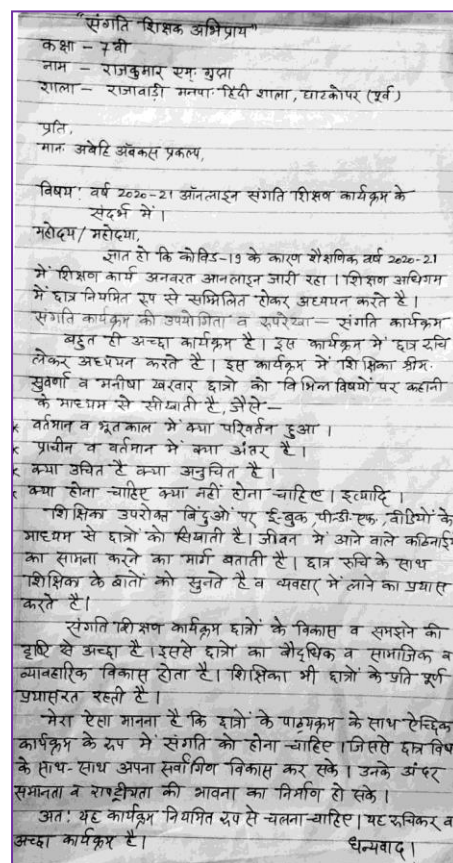 "संगति शिक्षक अभिप्राय"
कक्षा - 7वी
नाम - राजकुमार एम. गुप्ता
शाला - राजावाड़ी मनपा. हिंदी शाला, घाटकोपर (पूर्व)
प्रति,
मान. अबेहि ॲबकस प्रकल्प,
विषय: वर्ष 2020-21 ऑनलाइन संगति शिक्षण कार्यक्रम के
संदर्भ में।
महोदय/महोदया,
ज्ञात हो कि कोविड-19 के कारण शैक्षणिक वर्ष 2020-21
में शिक्षण कार्य अनवरत आनलाइन जारी रहा। शिक्षण अधिगम
में छात्र नियमित रूप से सम्मिलित होकर अध्ययन करते है।
संगति कार्यक्रम की उपयोगिता व रूपरेखा - संगति कार्यक्रम
बहुत ही अच्छा कार्यक्रम है। इस कार्यक्रम में छात्र रूचि
लेकर अध्ययन करते है। इस कार्यक्रम में शिक्षिका श्रीम.
सुवर्णा व मनीषा खरवार छात्रों को विभिन्न विषयों पर कहानी
के माध्यम से सीखाती है, जैसे -
* वर्तमान व भूतकाल में क्या परिवर्तन हुआ।
* प्राचीन व वर्तमान में क्या अंतर है।
* क्या उचित है क्या अनुचित है।
* क्या होना चाहिए क्या नहीं होना चाहिए। इत्यादि।
शिक्षिका उपरोक्त बिंदुओं पर ई-बुक, पी-डी-एफ, वीडियों के
माध्यम से छात्रों को सिखाती है। जीवन में आने वाले कठिनाई
का सामना करने का मार्ग बताती है। छात्र रूचि के साथ
शिक्षिका के बातों को सुनते है व व्यवहार में लाने का प्रयास
करते है।
संगति शिक्षण कार्यक्रम छात्रों के विकास व समझने की
दृष्टि से अच्छा है। इससे छात्रों का बौद्धिक व सामाजिक व
व्यावहारिक विकास होता है। शिक्षिका भी छात्रों के प्रति पूर्ण
प्रयासरत रहती है।
मेरा ऐसा मानना है कि छात्रों के पाठ्यक्रम के साथ ऐच्छिक
कार्यक्रम के रूप में संगति को होना चाहिए। जिससे छात्र विष
के साथ-साथ अपना सर्वांगिण विकास कर सके। उनके अंदर
समानता व राष्ट्रीयता की भावना का निर्माण हो सके।
अत: यह कार्यक्रम नियमित रूप से चलना चाहिए। यह रूचिकर व
अच्छा कार्यक्रम है। धन्यवाद।